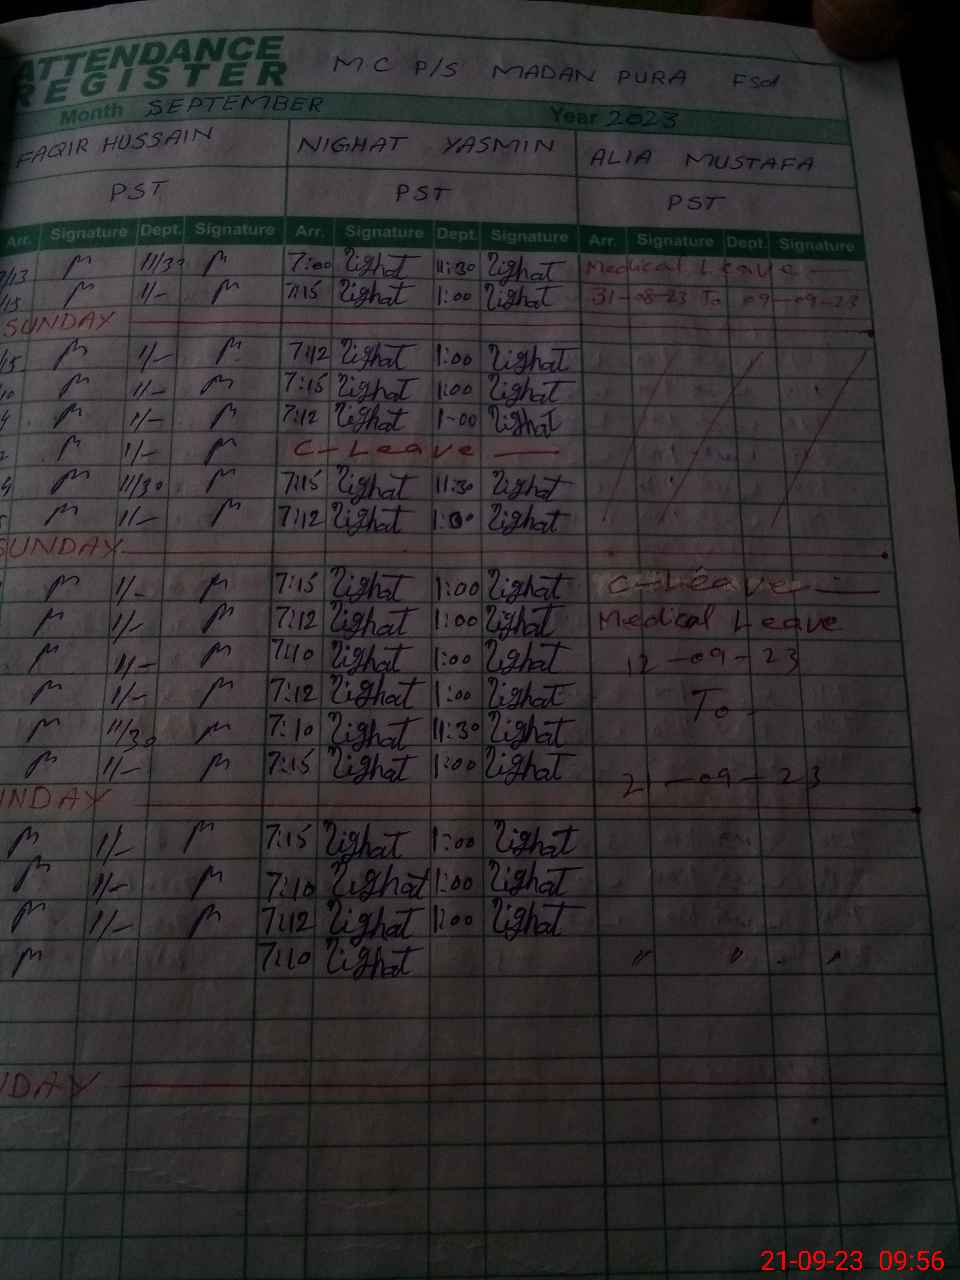 ATTENDANCE
REGISTER
MC P/S MADAN PURA Fsd
Month SEPTEMBER Year 2023
FAQIR HUSSAIN NIGHAT YASMIN ALIA MUSTAFA
PST PST PST
Arr. Signature Dept. Signature Arr. Signature Dept. Signature Arr. Signature Dept. Signature
/13 11/30 7:00 Nighat 11:30 Nighat Medical Leave —
/15 1/- 7:15 Nighat 1:00 Nighat 31-08-23 To 09-09-23
SUNDAY
/15 1/- 7:12 Nighat 1:00 Nighat
1/- 7:15 Nighat 1:00 Nighat
1/- 7:12 Nighat 1-00 Nighat
1/- C-Leave —
11/30 7:15 Nighat 11:30 Nighat
1/- 7:12 Nighat 1:00 Nighat
SUNDAY
1/- 7:15 Nighat 1:00 Nighat C-Leave —
1/- 7:12 Nighat 1:00 Nighat Medical Leave
1/- 7:10 Nighat 1:00 Nighat 12-09-23
1/- 7:12 Nighat 1:00 Nighat To
11/30 7:10 Nighat 11:30 Nighat
1/- 7:15 Nighat 1:00 Nighat 21-09-23
NDAY
1/- 7:15 Nighat 1:00 Nighat
1/- 7:10 Nighat 1:00 Nighat
1/- 7:12 Nighat 1:00 Nighat
7:10 Nighat " " "
DAY
21-09-23 09:56